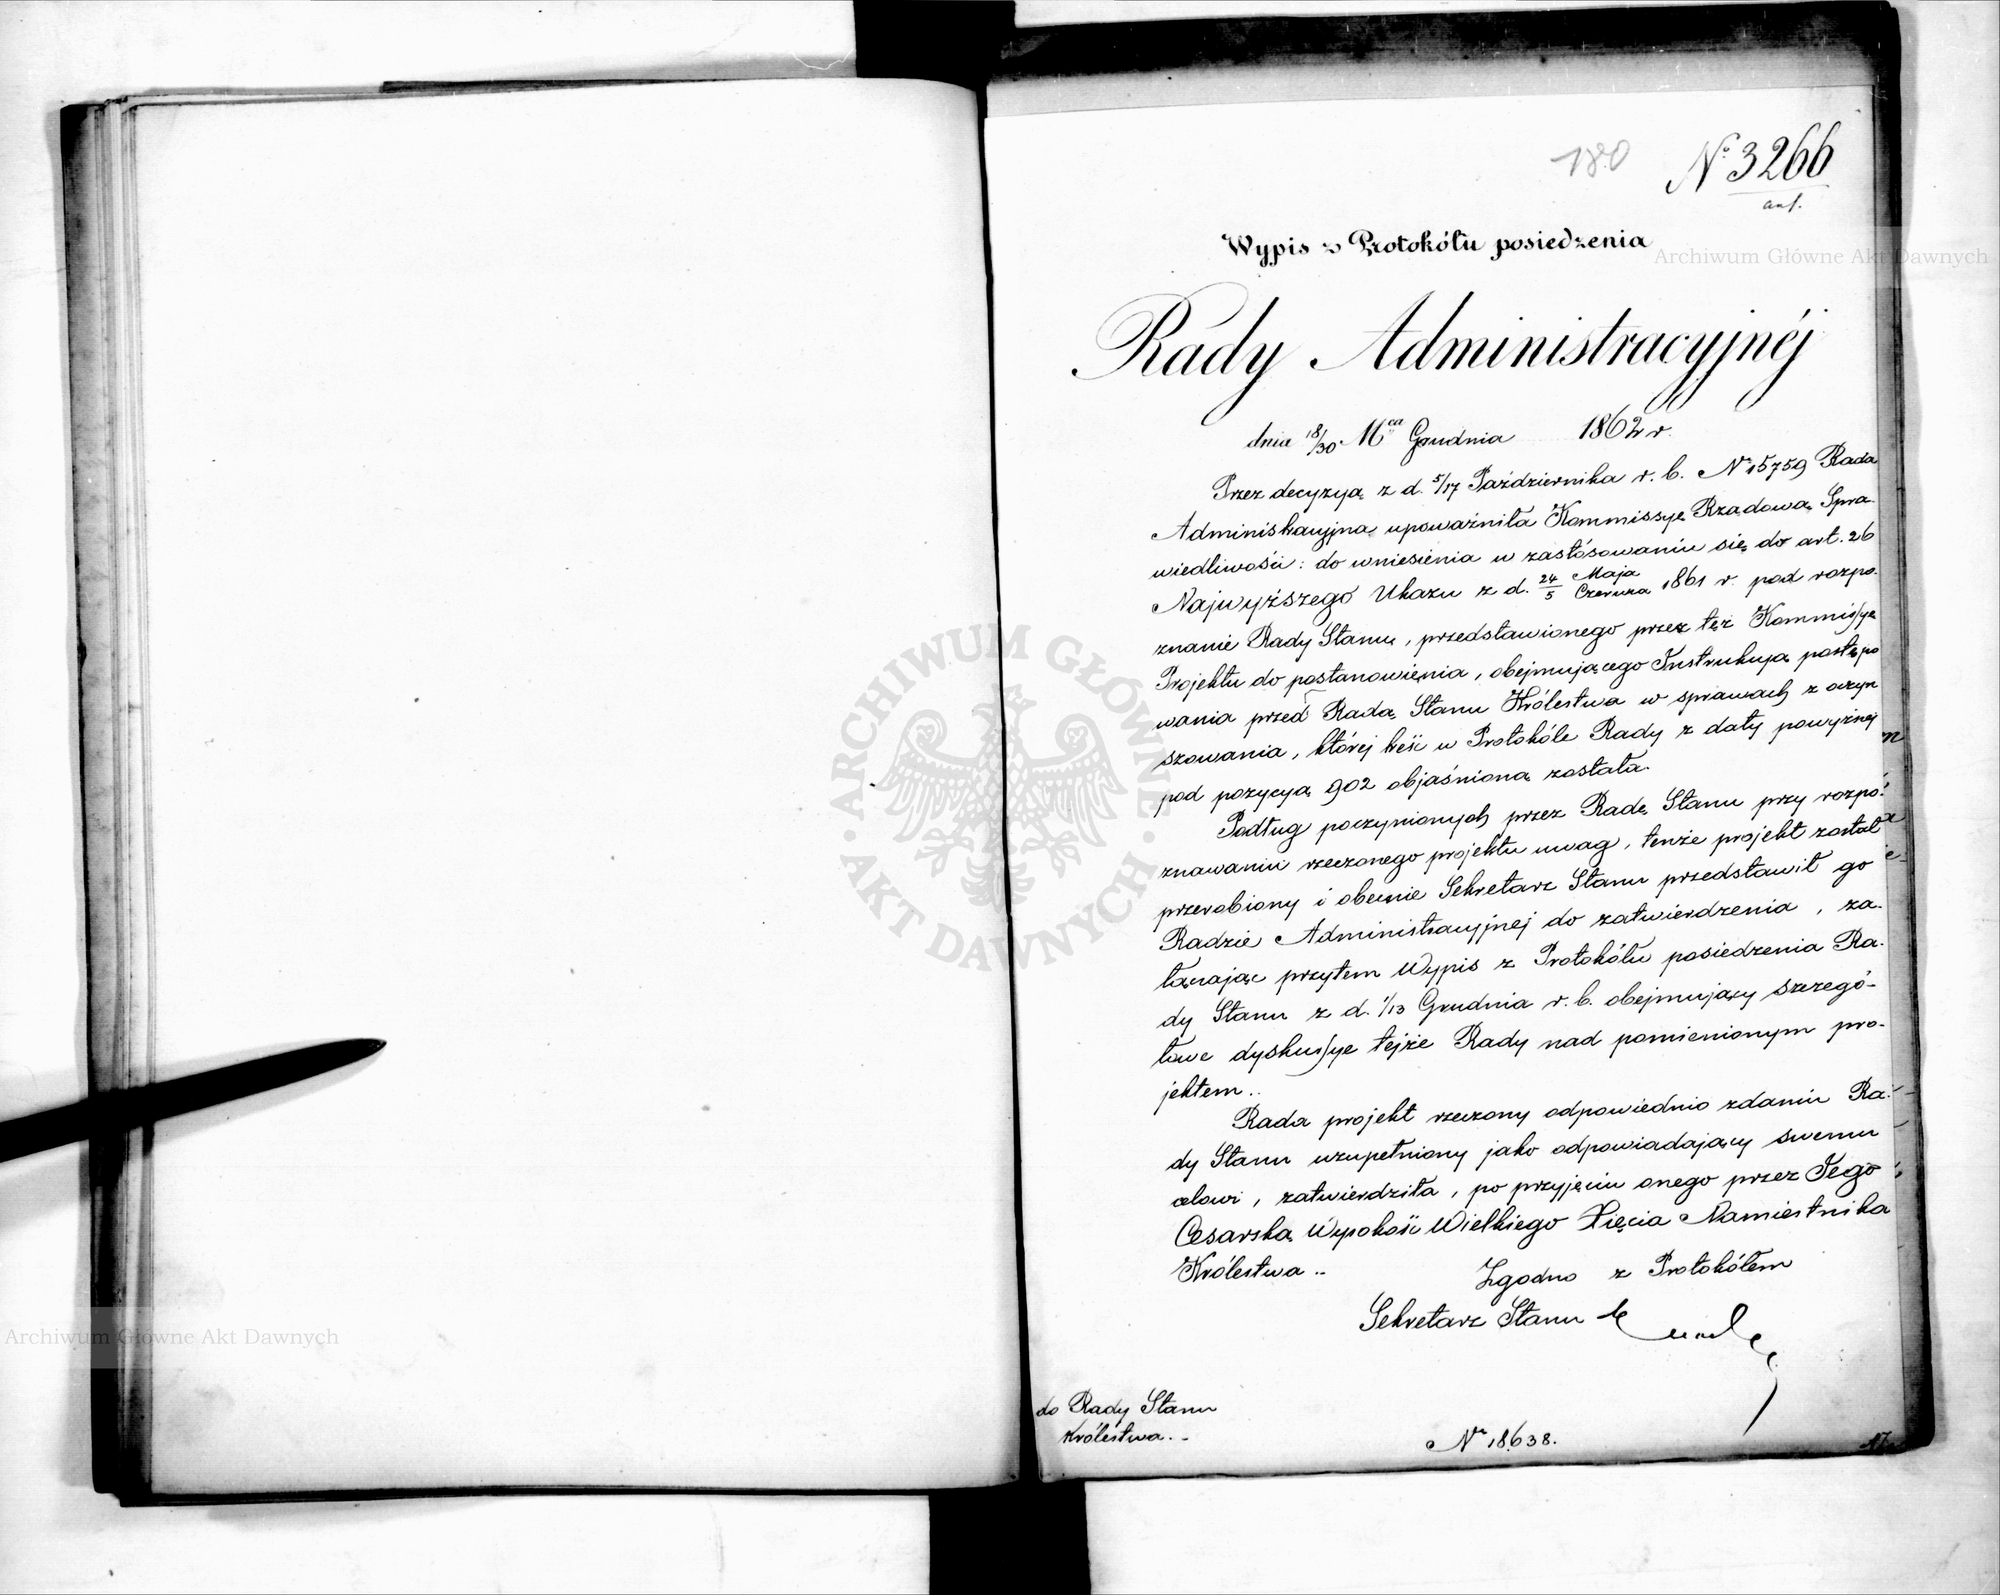 180 Nº 3266
ant.
Wypis z Protokółu posiedzenia
Archiwum Główne Akt Dawnych
Rady Administracyjnéj
dnia 18/30 Mca Grudnia 1862 r.
Przez decyzyą z d. 5/17 Października r. b. Nº 15759 Rada
Administracyjna upoważniła Kommissyę Rządową Spra-
wiedliwości: do wniesienia w zastósowaniu się do art. 26
Najwyższego Ukazu z d. 24 Maja / 5 Czerwca 1861 r. pod rozpo-
znanie Rady Stanu, przedstawionego przez tęż Kommissyę
Projektu do postanowienia, obejmującego Instrukcyą postępo
wania przed Radą Stanu Królestwa w sprawach z oczyn
szowania, której treść w Protokóle Rady z daty powyższej
pod pozycyą 902 objaśnioną została.
Podług poczynionych przez Radę Stanu przy rozpo-
znawaniu rzeczonego projektu uwag, tenże projekt został
przerobiony i obecnie Sekretarz Stanu przedstawił go
Radzie Administracyjnej do zatwierdzenia, za-
łączając przytem Wypis z Protokółu posiedzenia Ra-
dy Stanu z d. 1/13 Grudnia r. b. obejmujący szczegó-
łowe dyskussye tejże Rady nad pomienionym pro-
jektem..
Rada projekt rzeczony odpowiednio zdaniu Ra-
dy Stanu uzupełniony jako odpowiadający swemu
celowi, zatwierdziła, po przyjęciu onego przez Jego
Cesarską Wysokość Wielkiego Xięcia Namiestnika
Królestwa..
Zgodno z Protokółem
Sekretarz Stanu
do Rady Stanu
Królestwa..
Nº 18638.
17
ARCHIWUM GŁÓWNE AKT DAWNYCH
Archiwum Główne Akt Dawnych